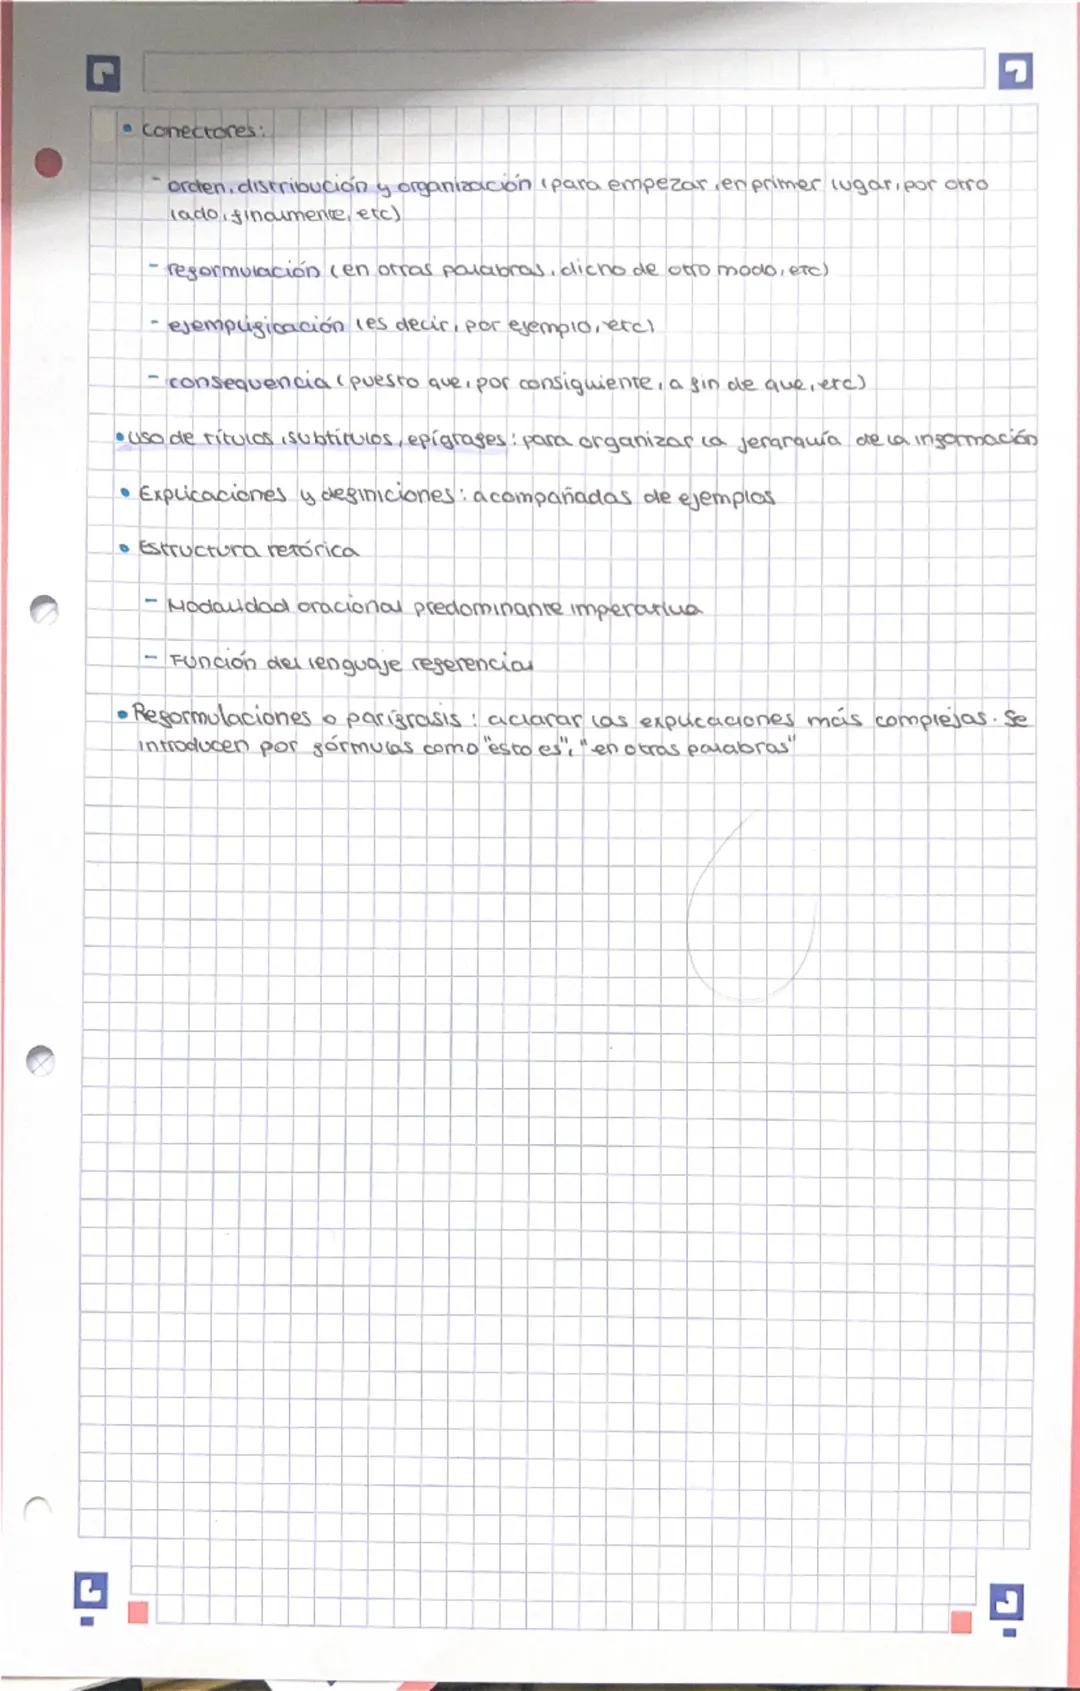 • conectores:
- orden, distribución y organización (para empezar, en primer lugar, por otro
lado, finalmente, etc)
- reformulación (en otras palabras, dicho de otro modo, etc)
- ejemplificación (es decir, por ejemplo, etc)
- consequencia (puesto que, por consiguiente, a fin de que, etc)
• uso de títulos, subtítulos, epígrafes: para organizar la jerarquía de la información
• Explicaciones y definiciones: acompañadas de ejemplos
• Estructura retórica
- Modalidad oracional predominante imperativa
- Función del lenguaje referencial
• Reformulaciones o parífrasis: aclarar las explicaciones más complejas. Se
introducen por fórmulas como "esto es", "en otras palabras"